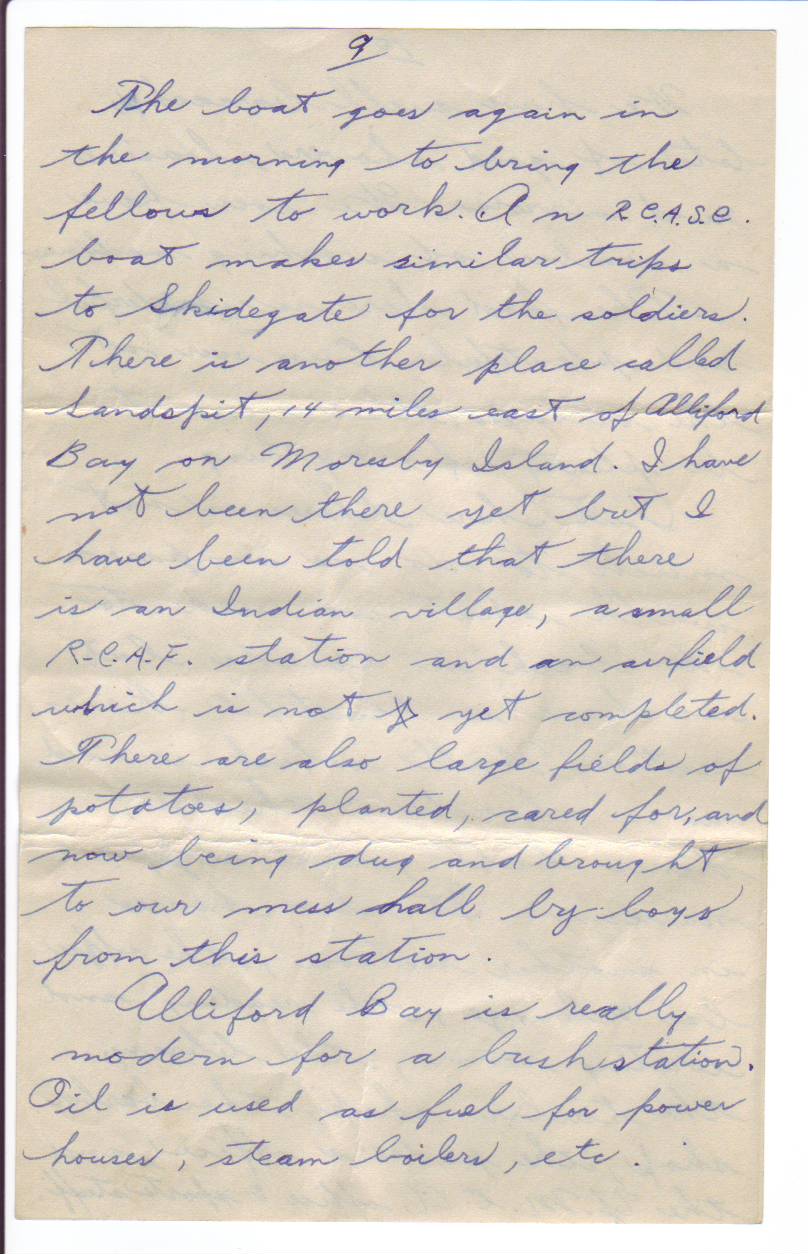 9
The boat goes again in
the morning to bring the
fellows to work. An R.C.A.S.C.
boat makes similar trips
to Skidegate for the soldiers.
There is another place called
Sandspit, 14 miles east of Alliford
Bay on Moresby Island. I have
not been there yet but I
have been told that there
is an Indian village, a small
R.C.A.F. station and an airfield
which is not yet completed.
There are also large fields of
potatoes, planted, cared for, and
now being dug and brought
to our mess hall by boys
from this station.
Alliford Bay is really
modern for a bush station.
Oil is used as fuel for power
houses, steam boilers, etc.